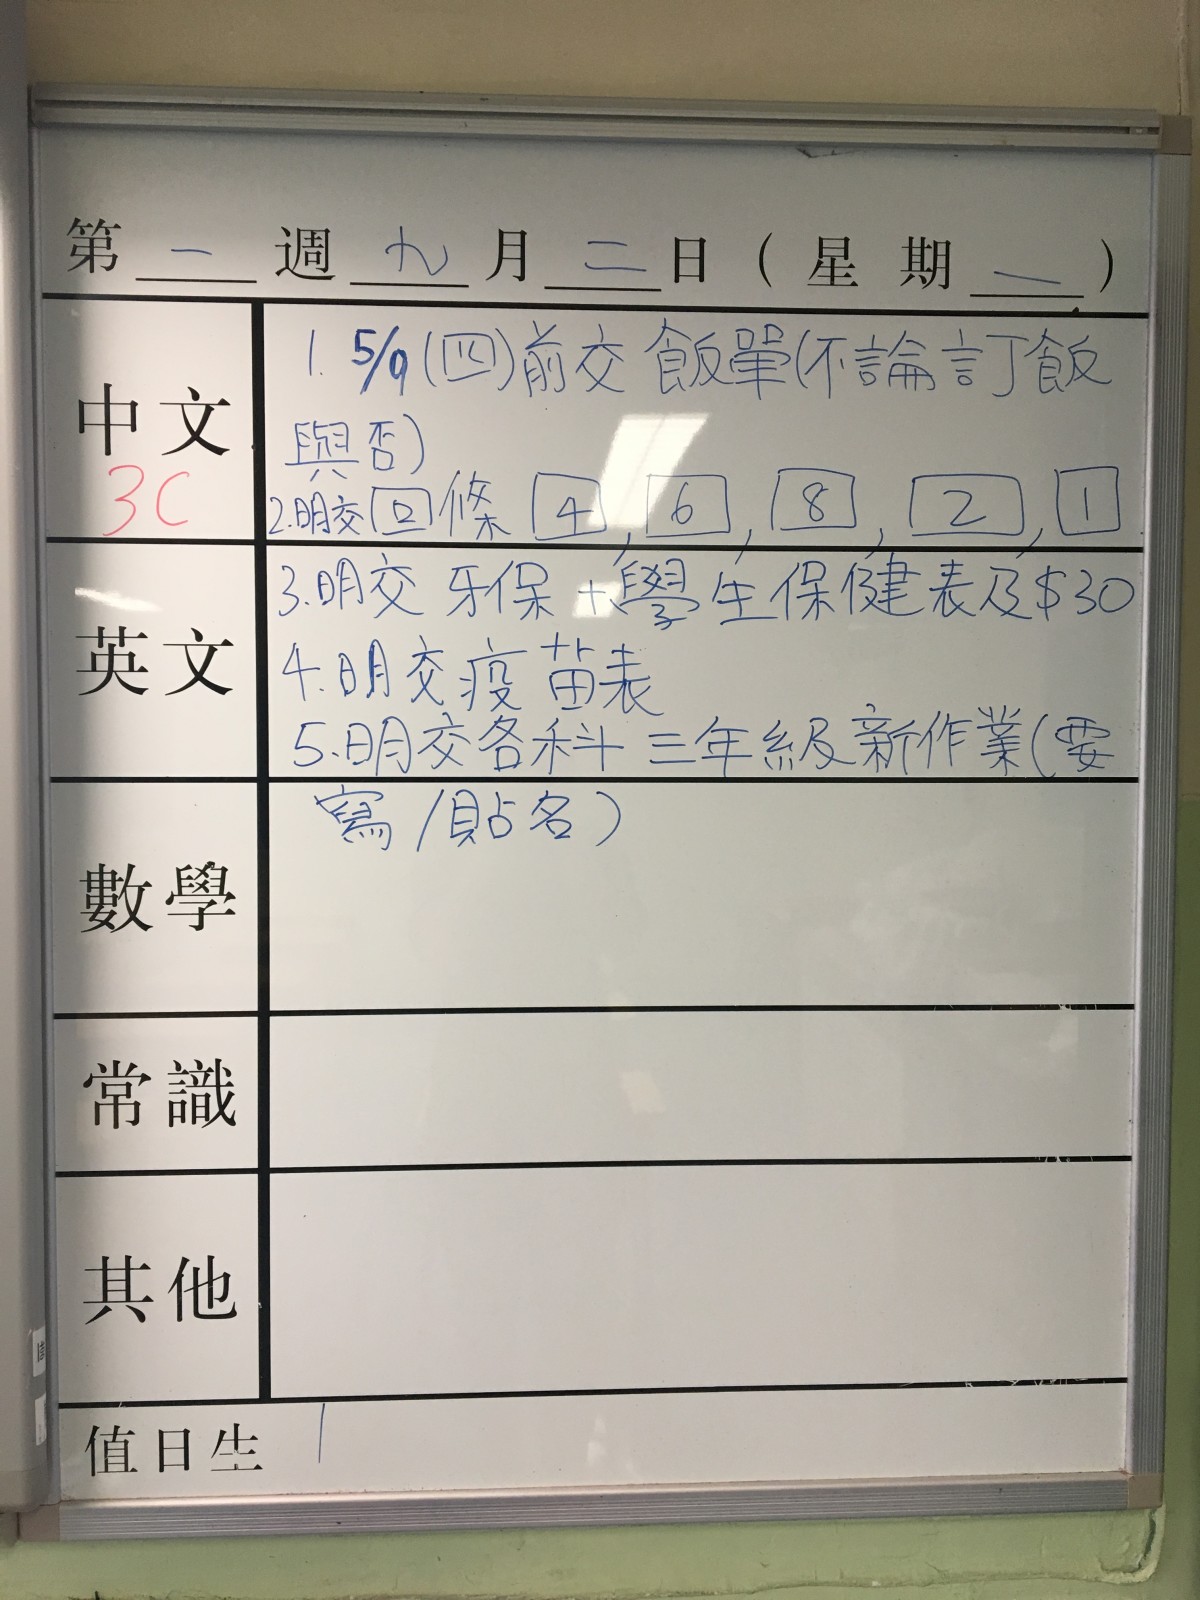 第一週九月二日(星期一)
中文
3C
1. 5/9(四)前交飯單(不論訂飯
與否)
2.明交回條 4, 6, 8, 2, 1
英文
3.明交牙保+學生保健表及$30
4.明交疫苗表
5.明交各科三年級新作業(要
寫/貼名)
數學
常識
其他
值日生 1